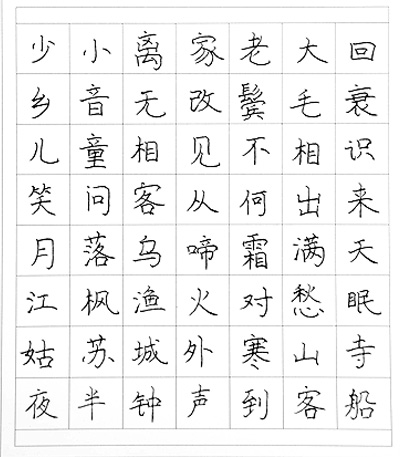 少小离家老大回
乡音无改鬓毛衰
儿童相见不相识
笑问客从何出来
月落乌啼霜满天
江枫渔火对愁眠
姑苏城外寒山寺
夜半钟声到客船